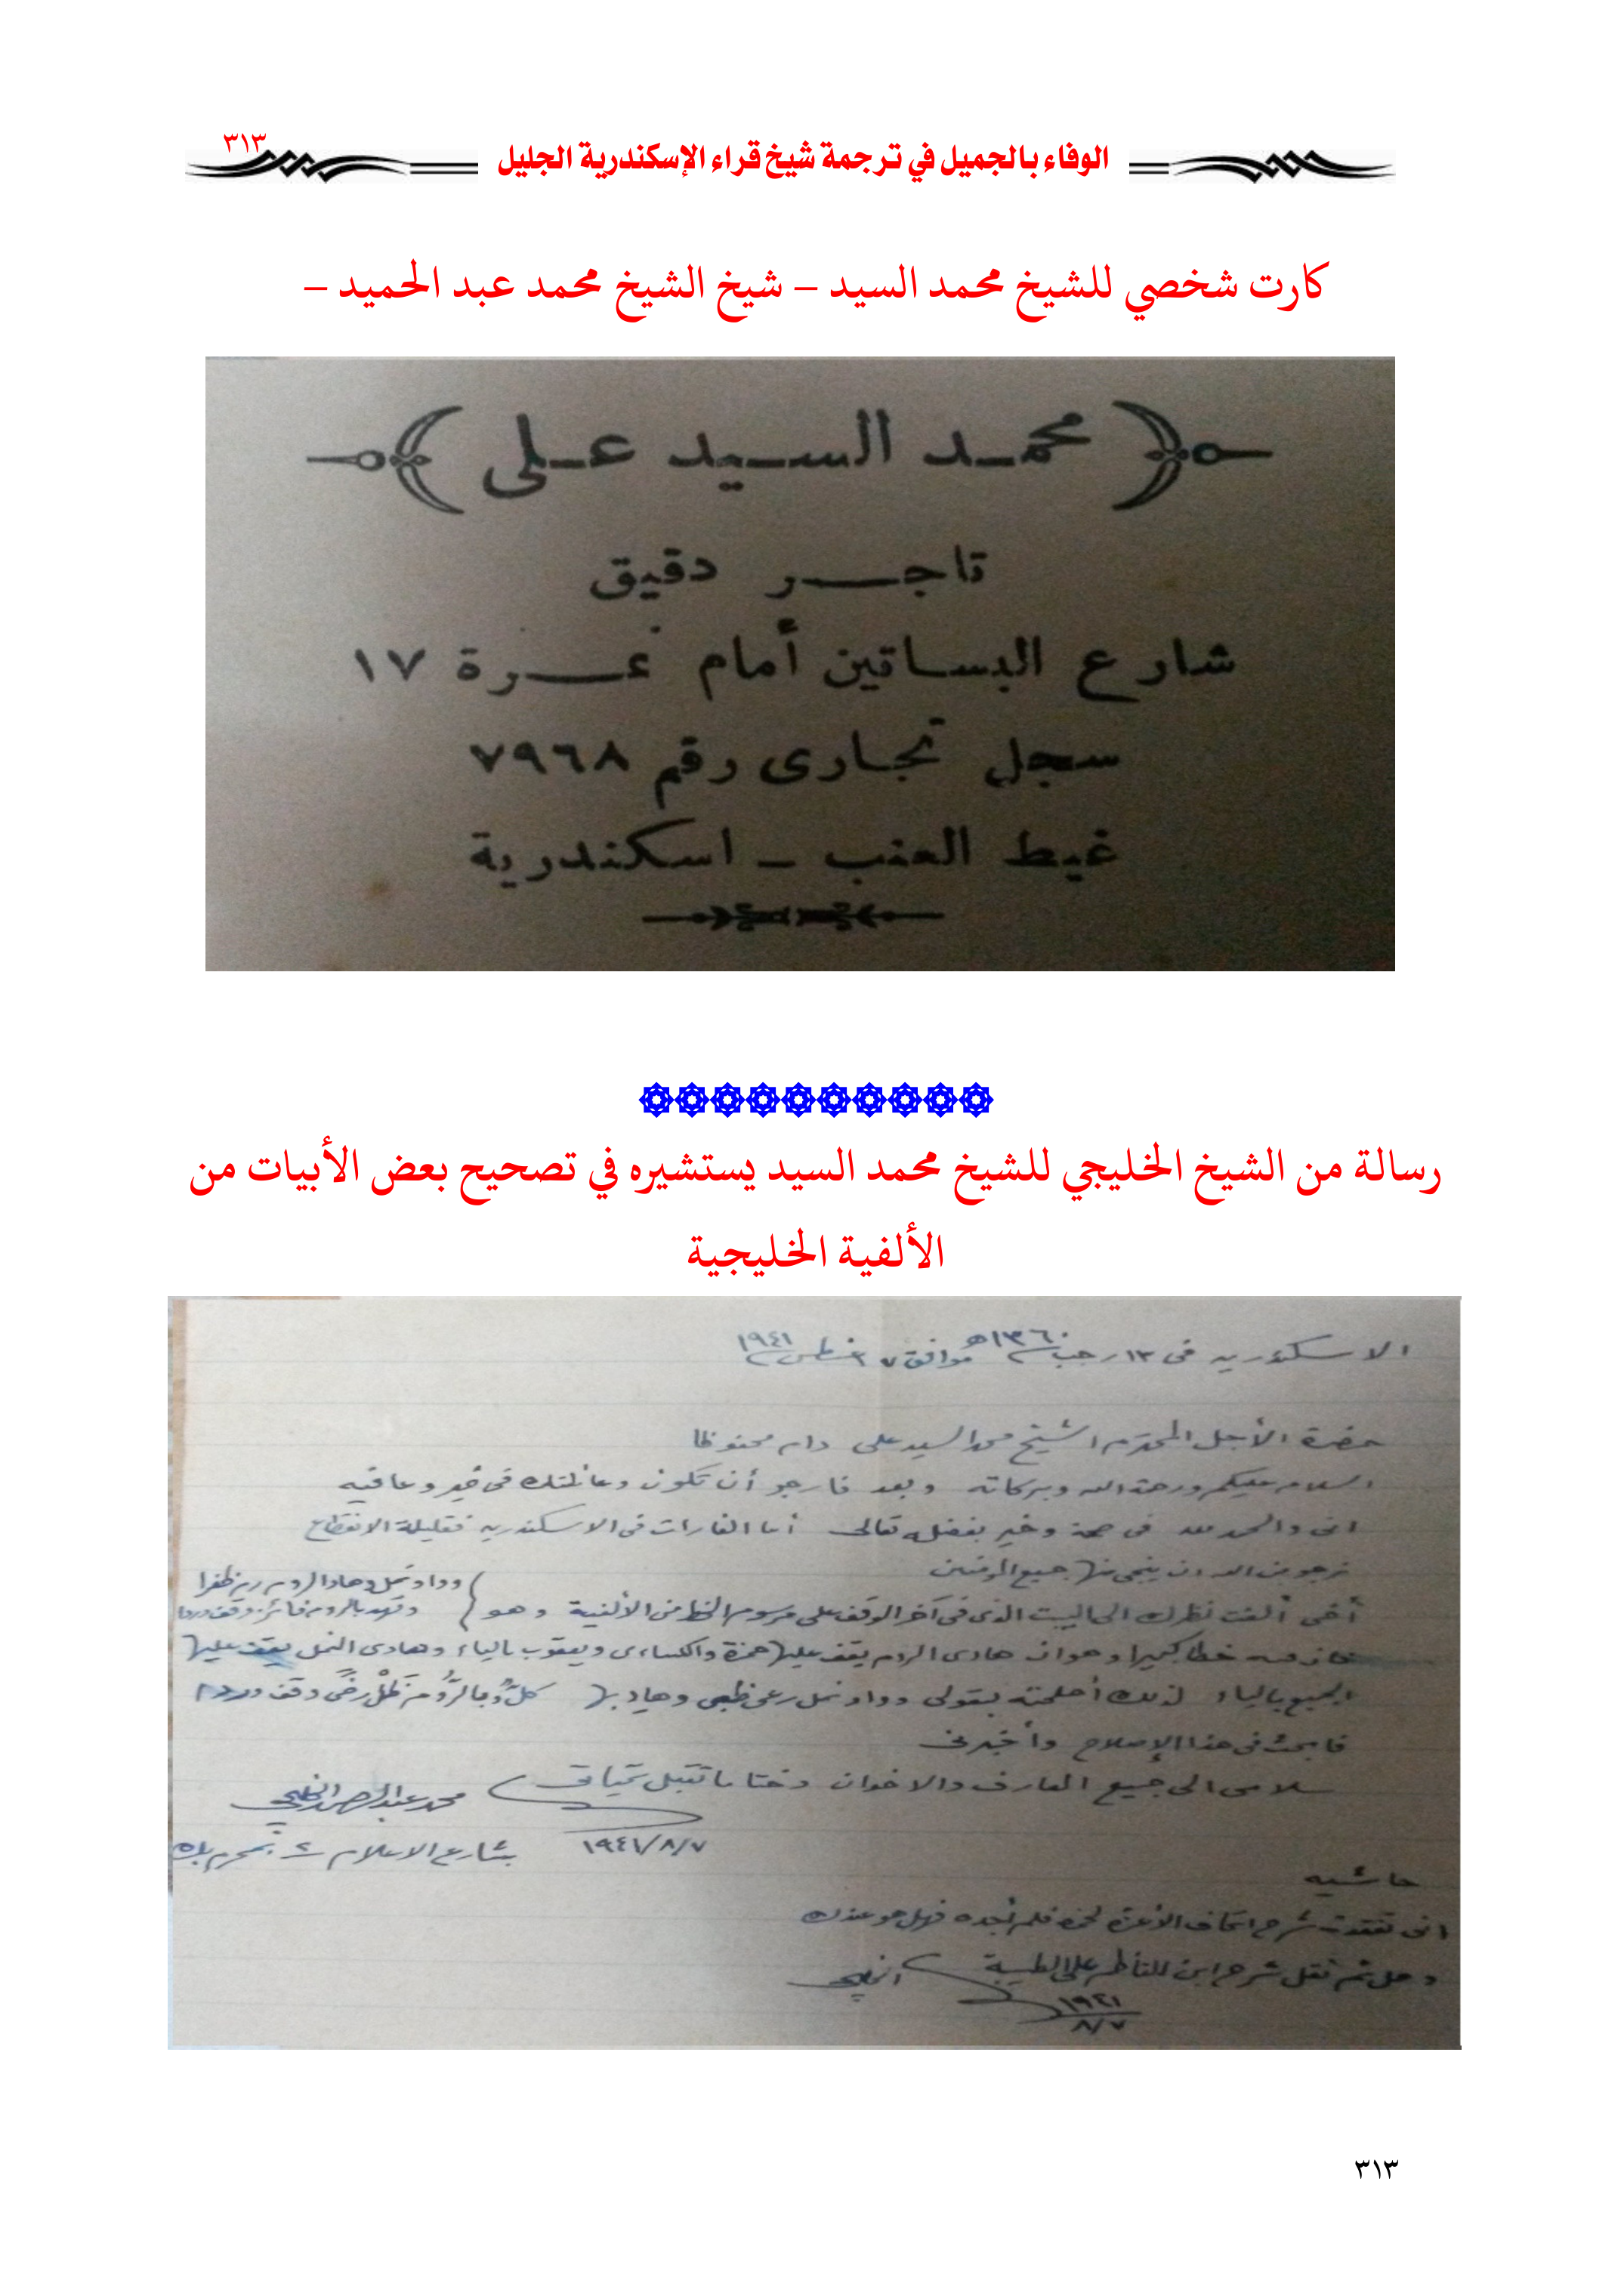 الوفاء بالجميل في ترجمة شيخ قراء الإسكندرية الجليل ٣١٣
كارت شخصي للشيخ محمد السيد – شيخ الشيخ محمد عبد الحميد –
محمد السيد على
تاجر دقيق
شارع البساتين أمام نمرة ١٧
سجل تجارى رقم ٧٩٦٨
غيط العنب – اسكندرية
رسالة من الشيخ الخليجي للشيخ محمد السيد يستشيره في تصحيح بعض الأبيات من
الألفية الخليجية
الاسكندريه فى ١٣ رجب ١٣٦٠هـ موافق ٧ اغسطس ١٩٤١
حضرة الأجل المحترم الشيخ محمد السيد على دام محفوظا
السلام عليكم ورحمة الله وبركاته وبعد فارجو أن تكون وعائلتك فى خير وعافيه
انى والحمد لله فى صحة وخير بفضله تعالى أما الغارات فى الاسكندريه فقليلة الانقطاع
نرجو من الله ان ينجى منها جميع المؤمنين
أخى ألفت نظرك الى البيت الذى فى آخر الوقف على مرسوم الخط من الألفية وهو
فان فيه خطا كبيرا وهو ان هادى الروم يقف عليها حمزة والكساءى ويعقوب بالياء وهادى النمل يقف عليها
الجميع بالياء لذلك أصلحته بقولى
فابحث فى هذا الإصلاح وأخبرنى
سلامى الى جميع المعارف والاخوان وختاما تقبل تحياتى
محمد عبد الرحمن الخليجى
١٩٤١/٨/٧ بشارع الاعلام بمحرم بك
حاشيه
انى تفقدت شرح اتحاف الأعزة لحمزة فلم أجده فهل هو عندك
وهل تم نقل شرح ابن الناظم على الطيبة الخليجى
١٩٤١
٨/٧
٣١٣